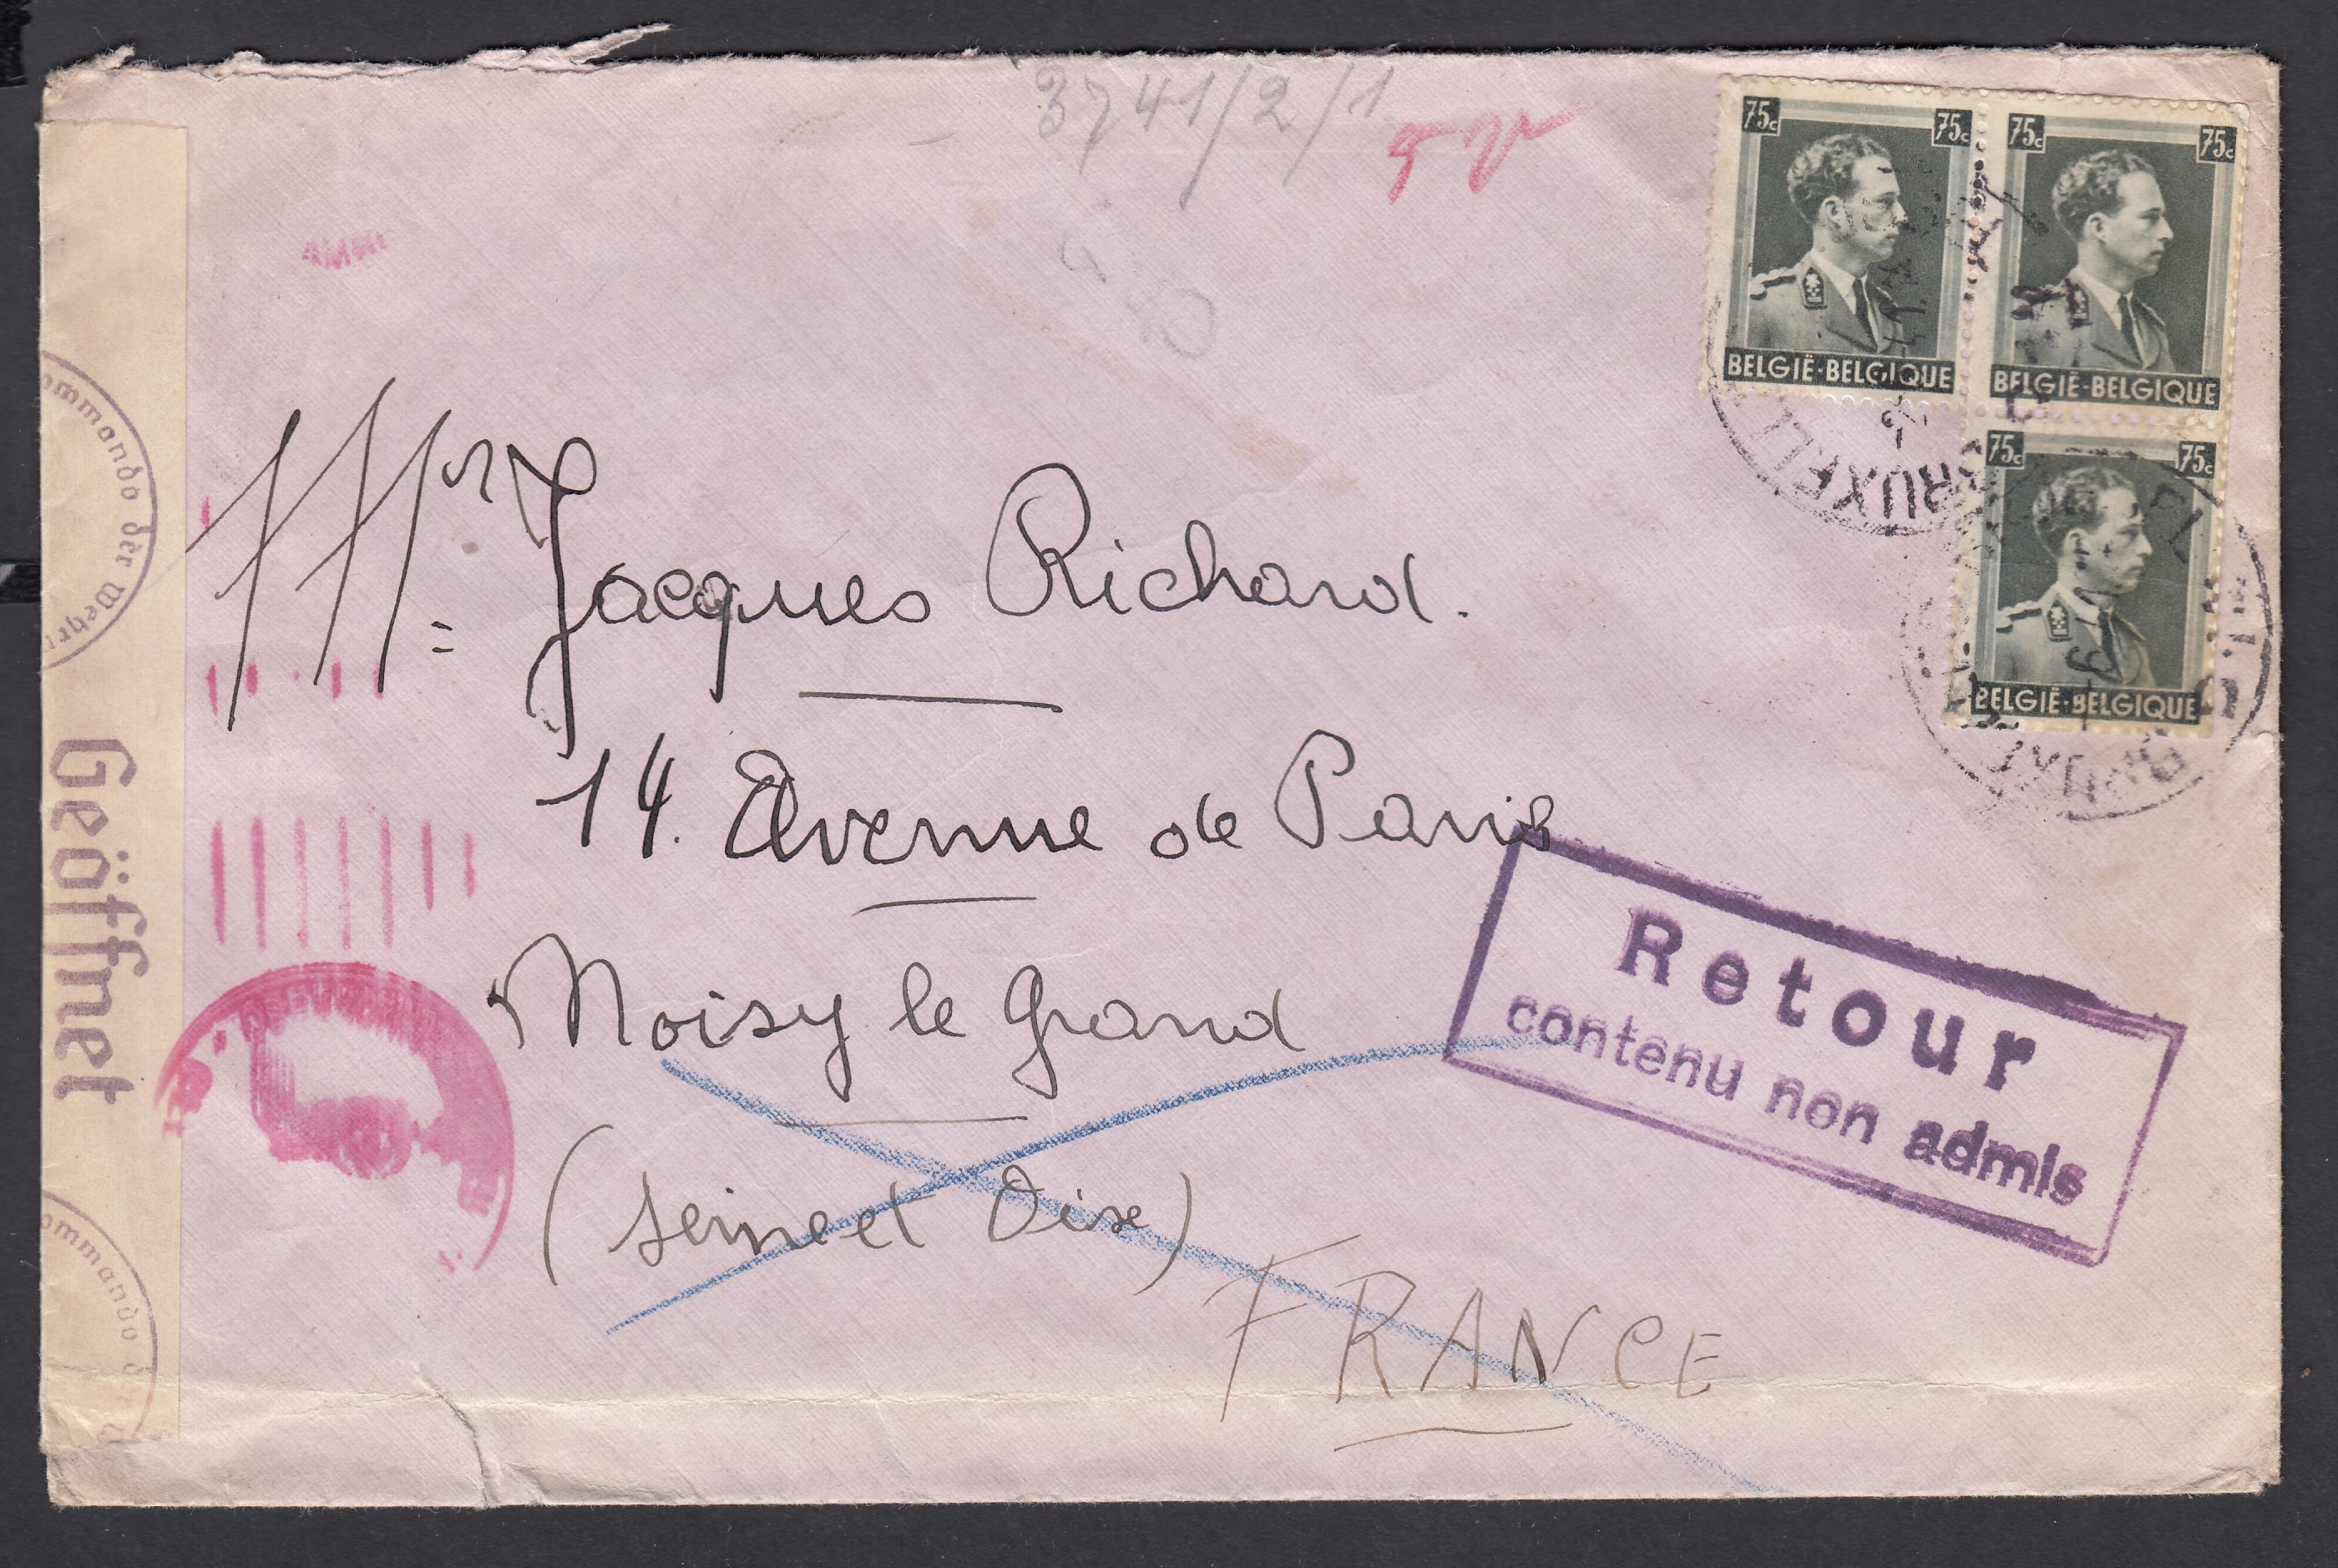 3741/2/1
75c 75c
BELGIË-BELGIQUE
75c 75c
BELGIË-BELGIQUE
75c 75c
BELGIË-BELGIQUE
Mr Jacques Richard.
14. Avenue de Paris
Noisy le Grand
(Seine et Oise)
FRANCE
Retour
contenu non admis
Geöffnet